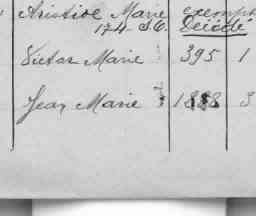 Aristide Marie exempt
174 S.C. Décédé
Victor Marie 395 1
Jean Marie 1888 3